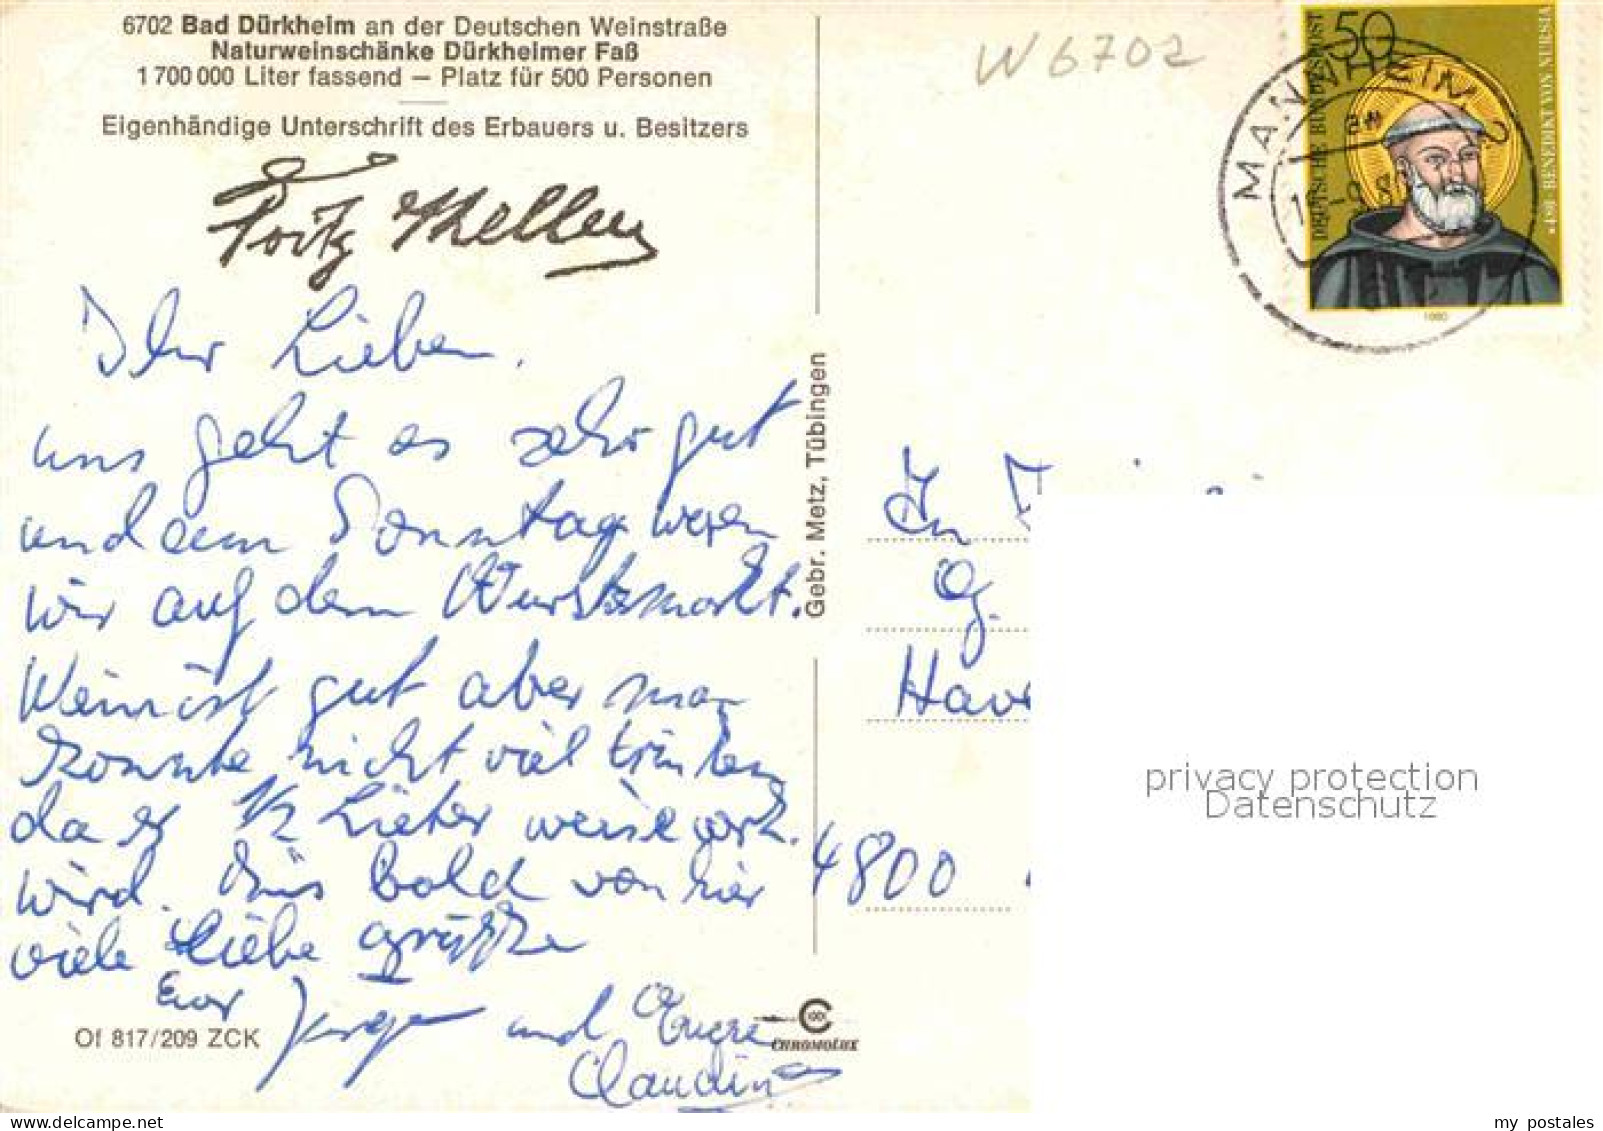 6702 Bad Dürkheim an der Deutschen Weinstraße
Naturweinschänke Dürkheimer Faß
1 700 000 Liter fassend — Platz für 500 Personen
Eigenhändige Unterschrift des Erbauers u. Besitzers
Fritz Keller
Ihr Lieben,
uns geht es sehr gut
und am Sonntag waren
wir auf dem Wurstmarkt.
Wein ist gut aber man
konnte nicht viel trinken
da er 1/2 Lieter weise verk.
wird. bald von hier
viele Liebe grüße
Euer Jürgen und Eure
Claudia
Of 817/209 ZCK
CHROMOLUX
Gebr. Metz, Tübingen
W 6702
DEUTSCHE BUNDESPOST
50
480 BENEDIKT VON NURSIA
1980
MANNHEIM 2
4800
privacy protection
Datenschutz
my postales